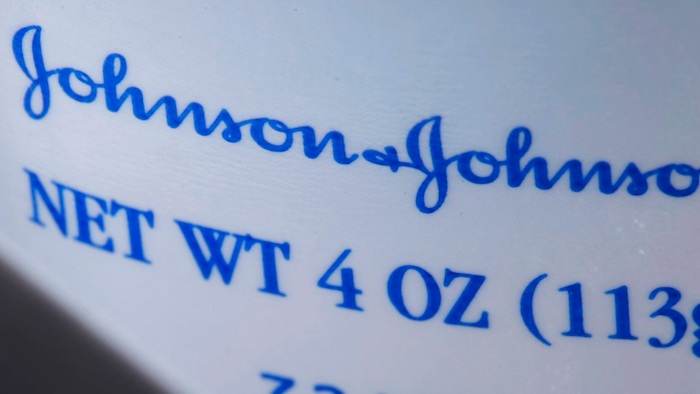 Johnson & Johnso
NET WT 4 OZ (113g